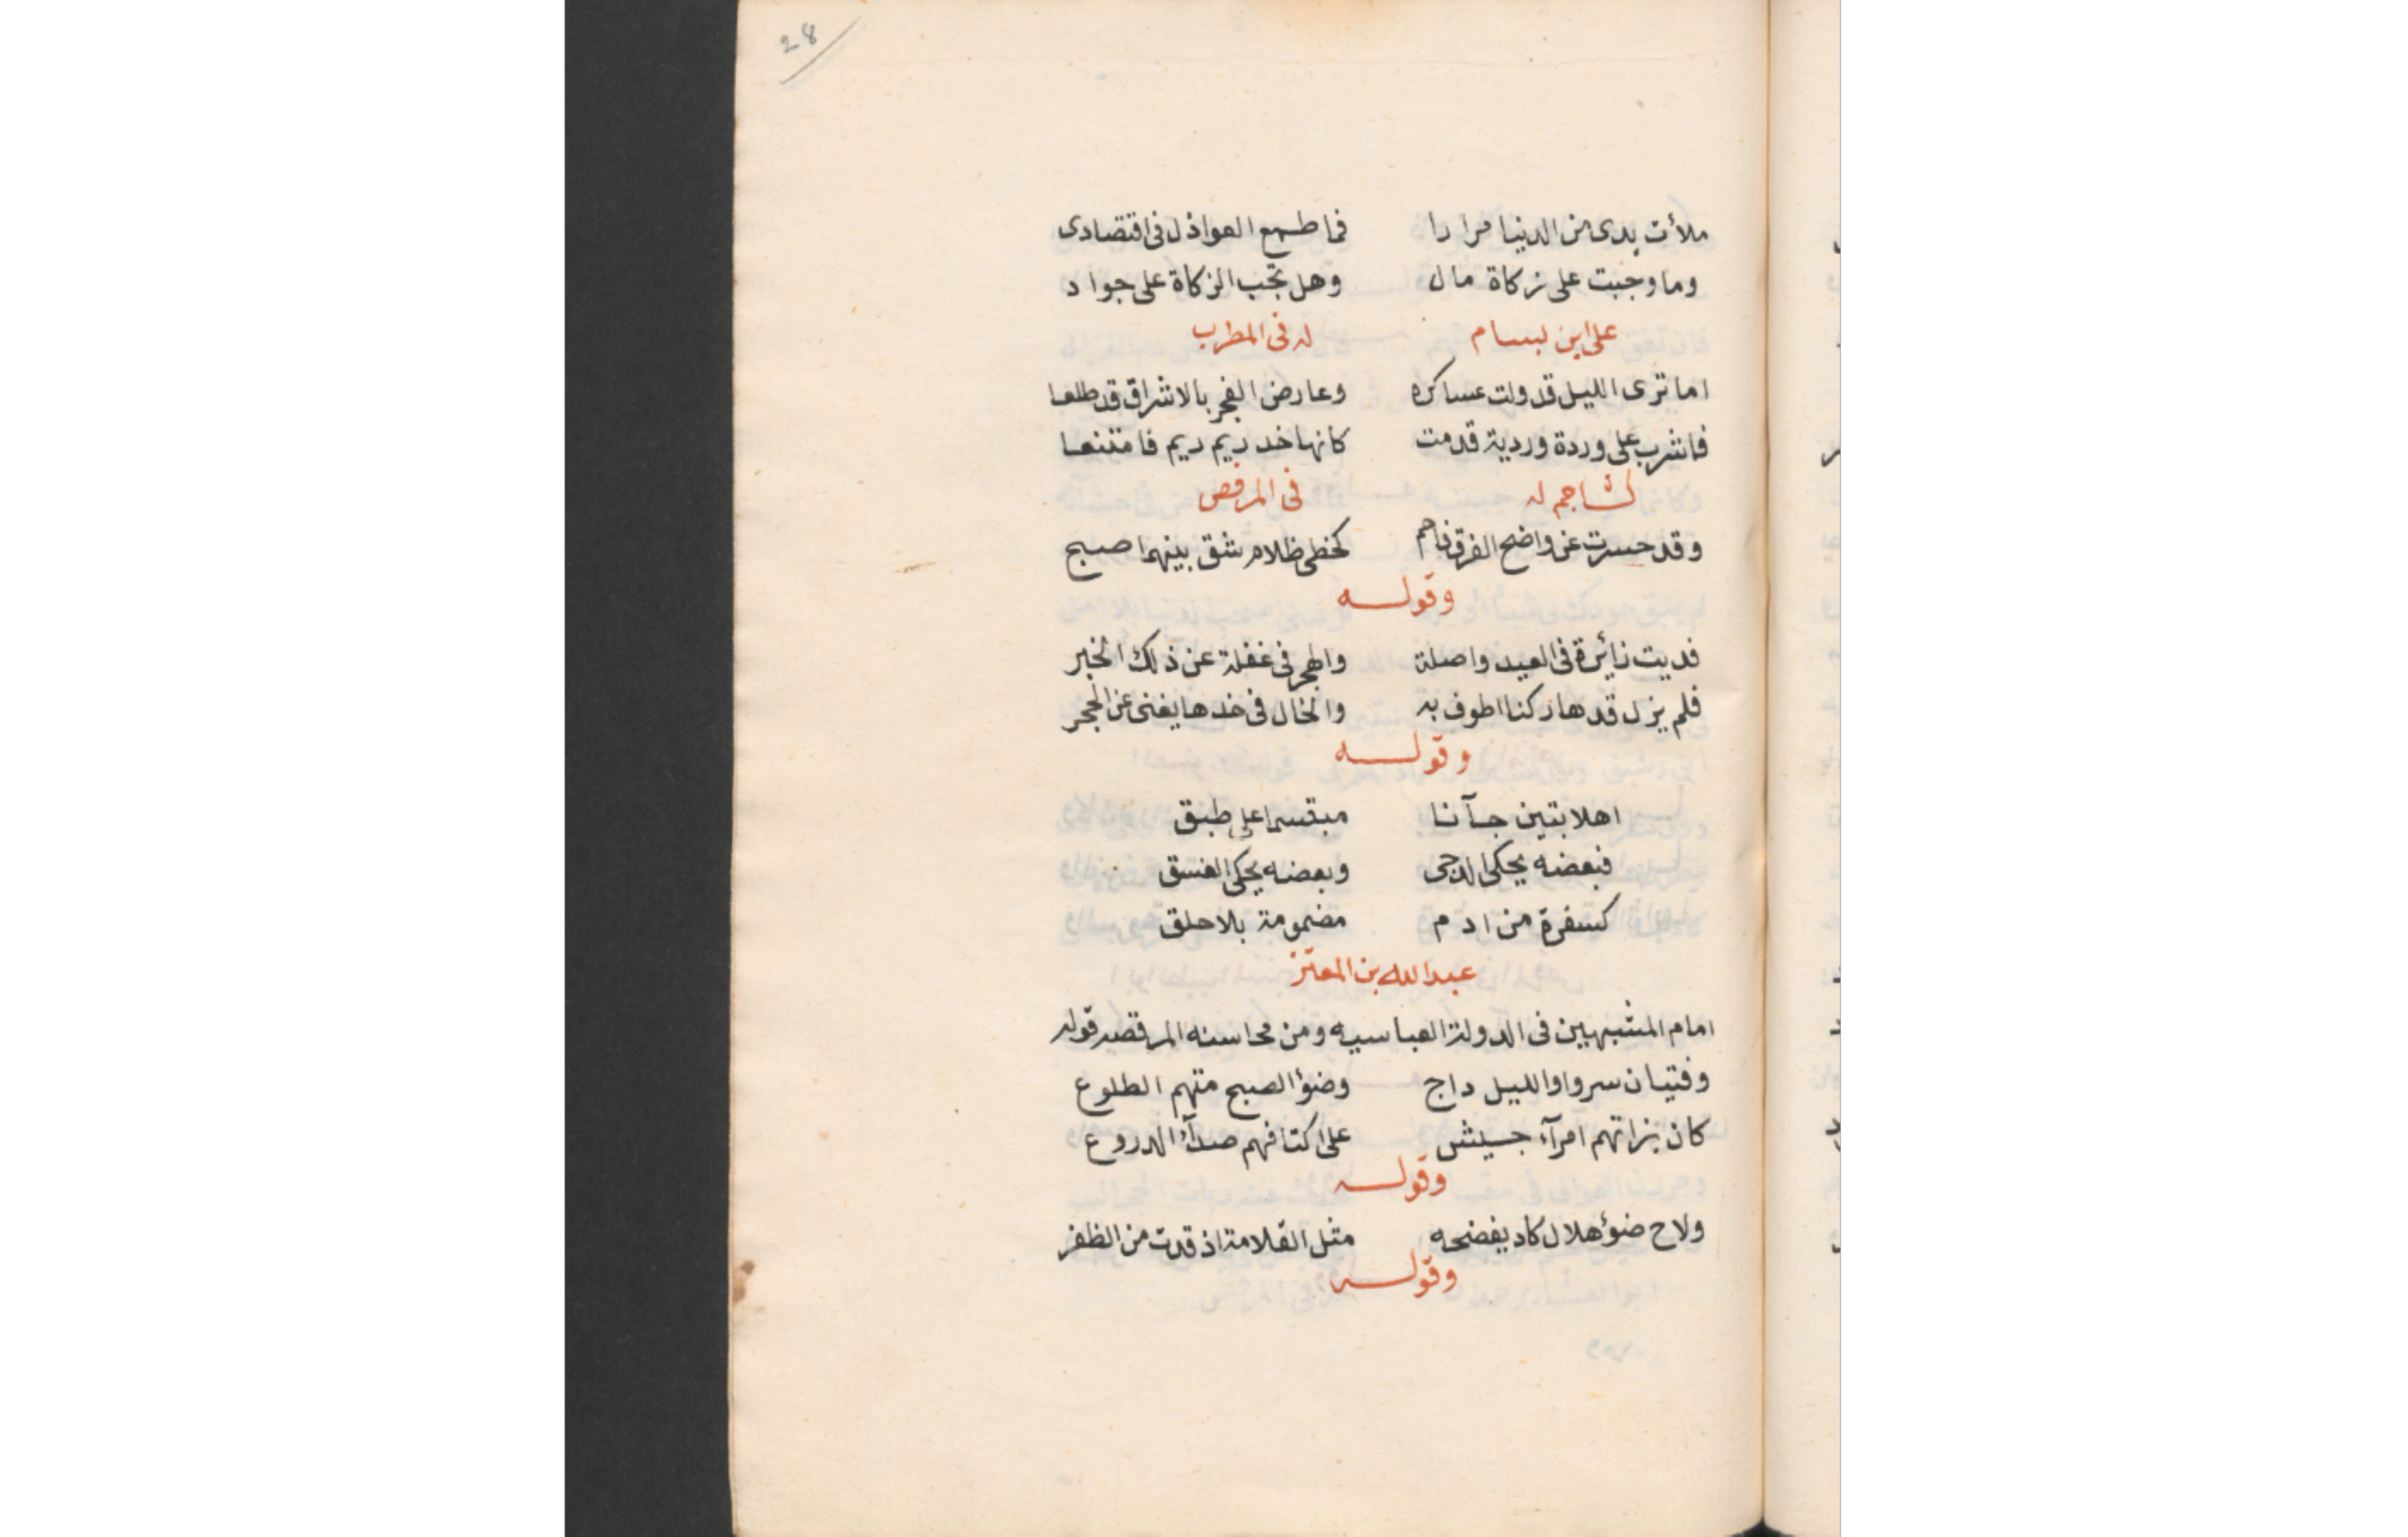 28
ملأت يدى من الدنيا مرارا فما طمع العواذل فى اقتصادى
وما وجبت على زكاة مال وهل تجب الزكاة على جواد
على ابن بسام له فى المطرب
اما ترى الليل قد ولت عساكره وعارض الفجر بالاشراق قد طلعا
فاشرب على وردة وردية قدمت كانها خد ريم ريم فامتنعا
كشاجم له فى المرقص
وقد حسرت عن واضح الفرق فاحم كخطى ظلام شق بينهما صبح
وقولـــه
فديت زائرة فى العيد واصلة والهجر فى غفلة عن ذلك الخبر
فلم يزل قدها ركنا اطوف به والخال فى خدها يغنى عن الحجر
وقولـــه
اهلا بتين جآنا مبتسما على طبق
فبعضه يحكى الدجى وبعضه يحكى الغسق
كسفرة من ادم مضمومة بلا حلق
عبد الله بن المعتز
امام المشبهين فى الدولة العباسيه ومن محاسنه المرقصه قوله
وفتيان سروا والليل داج وضوٴ الصبح متهم الطلوع
كان بزاتهم امرآء جيش على اكتافهم صدآٴ الدروع
وقولـــه
ولاح ضوٴ هلال كاد يفضحه مثل القلامة اذ قدت من الظفر
وقولـــه